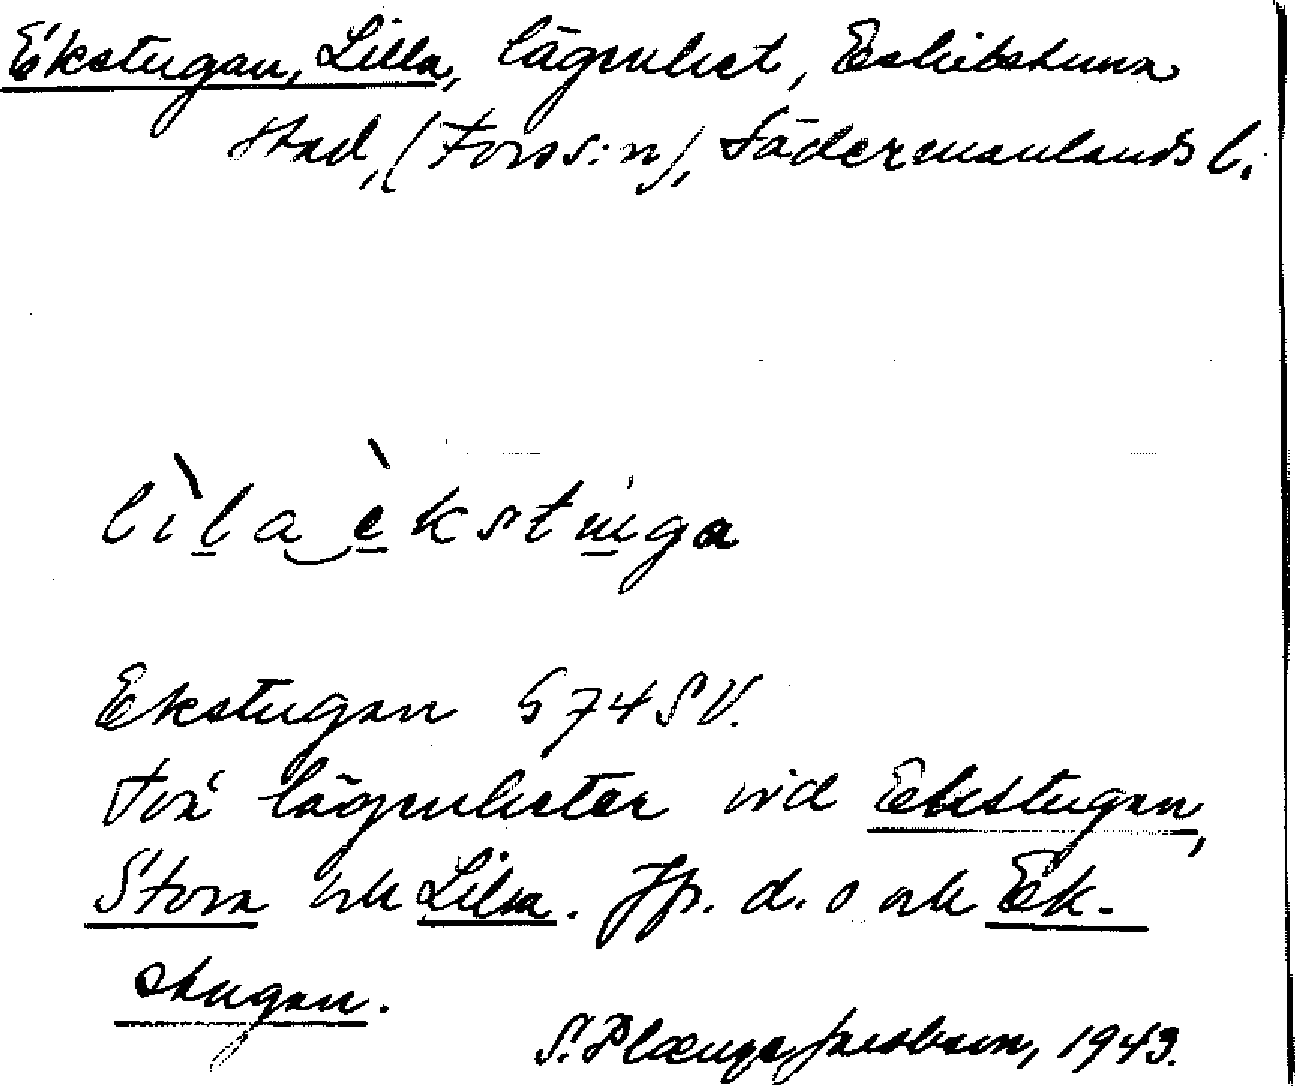 Ekstugan, Lilla, lägenhet, Eskilstuna
stad, (Fors s:n), Södermanlands l.
lìla èkstuga
Ekstugan G74SV.
Två lägenheter vid Ekstugan,
Stora och Lilla. Jfr. d. o och Ek-
stugan.
S. Plænge Jacobson, 1943.